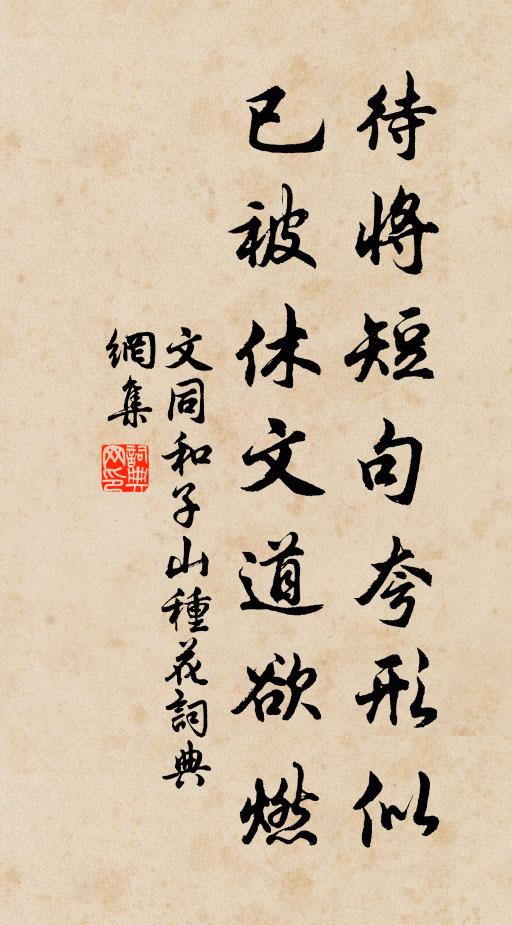 待將短句夸形似
已被休文道欲燃
文同和子山種花詞典
網集
詞典
网印